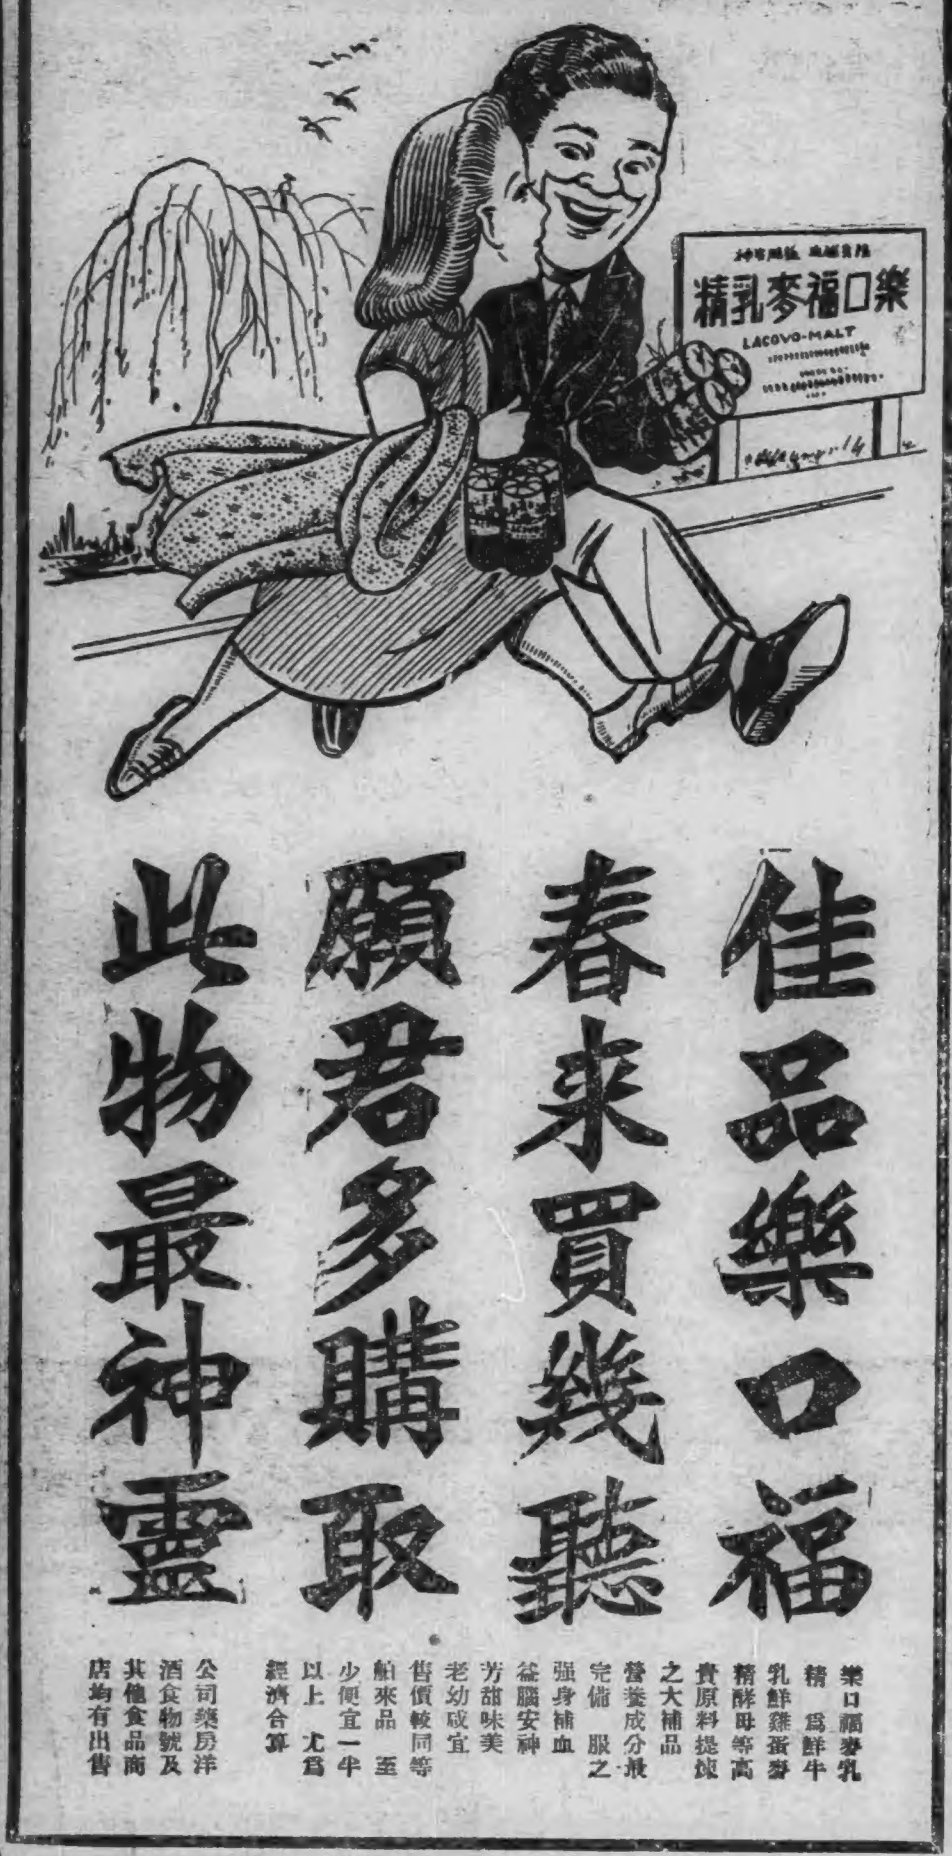 樂口福麥乳精
LACOVO-MALT
佳品樂口福
春來買幾聽
願君多購取
此物最神靈
樂口福麥乳
精 爲鮮牛
乳鮮雞蛋麥
精酵母等高
貴原料提煉
之大補品
營養成分最
完備 服之
强身補血
益腦安神
芳甜味美
老幼咸宜
售價較同等
舶來品 至
少便宜一半
以上 尤爲
經濟合算
公司藥房洋
酒食物號及
其他食品商
店均有出售